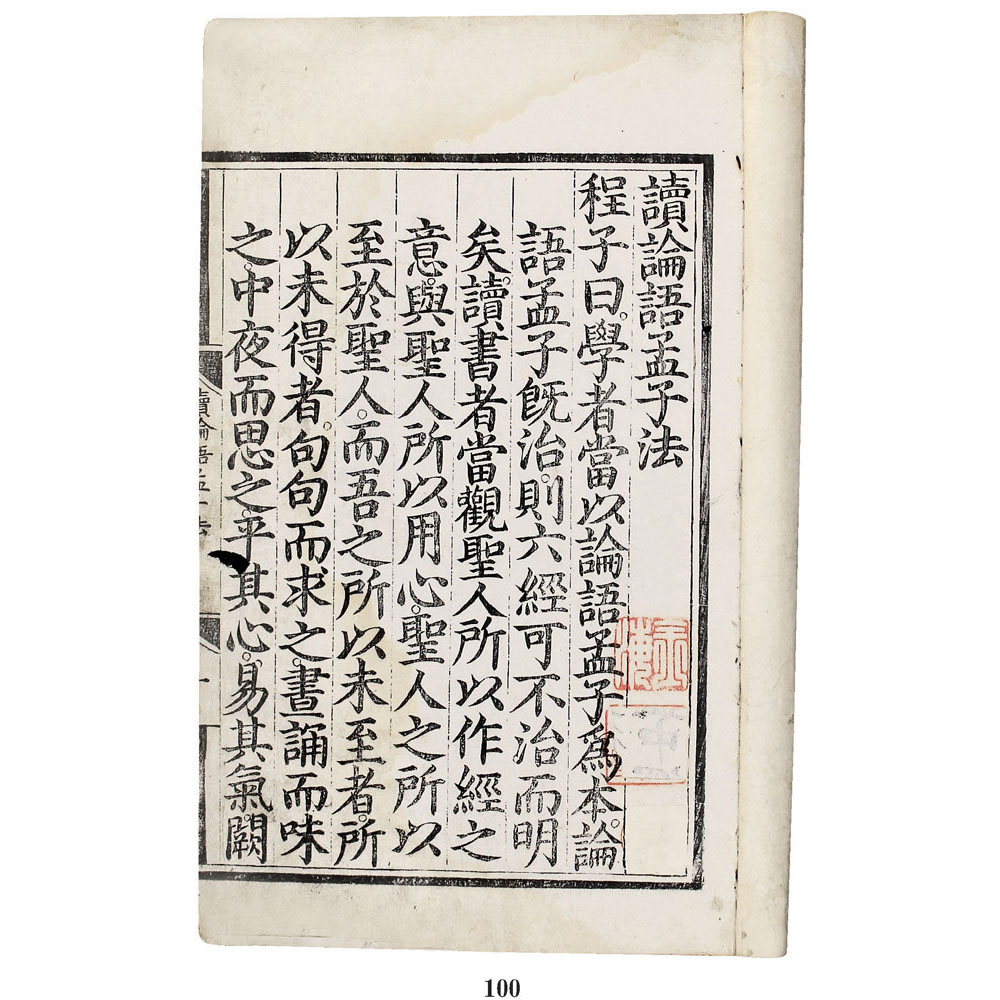 讀論語孟子法
程子曰學者當以論語孟子爲本論
語孟子旣治則六經可不治而明
矣讀書者當觀聖人所以作經之
意與聖人所以用心聖人之所以
至於聖人而吾之所以未至者所
以未得者句句而求之晝誦而味
之中夜而思之平其心易其氣闕
讀論語孟子法
一
100